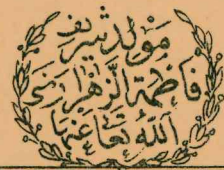 مولد شريف
فاطمة الزهرا رضي
الله تعا عنها